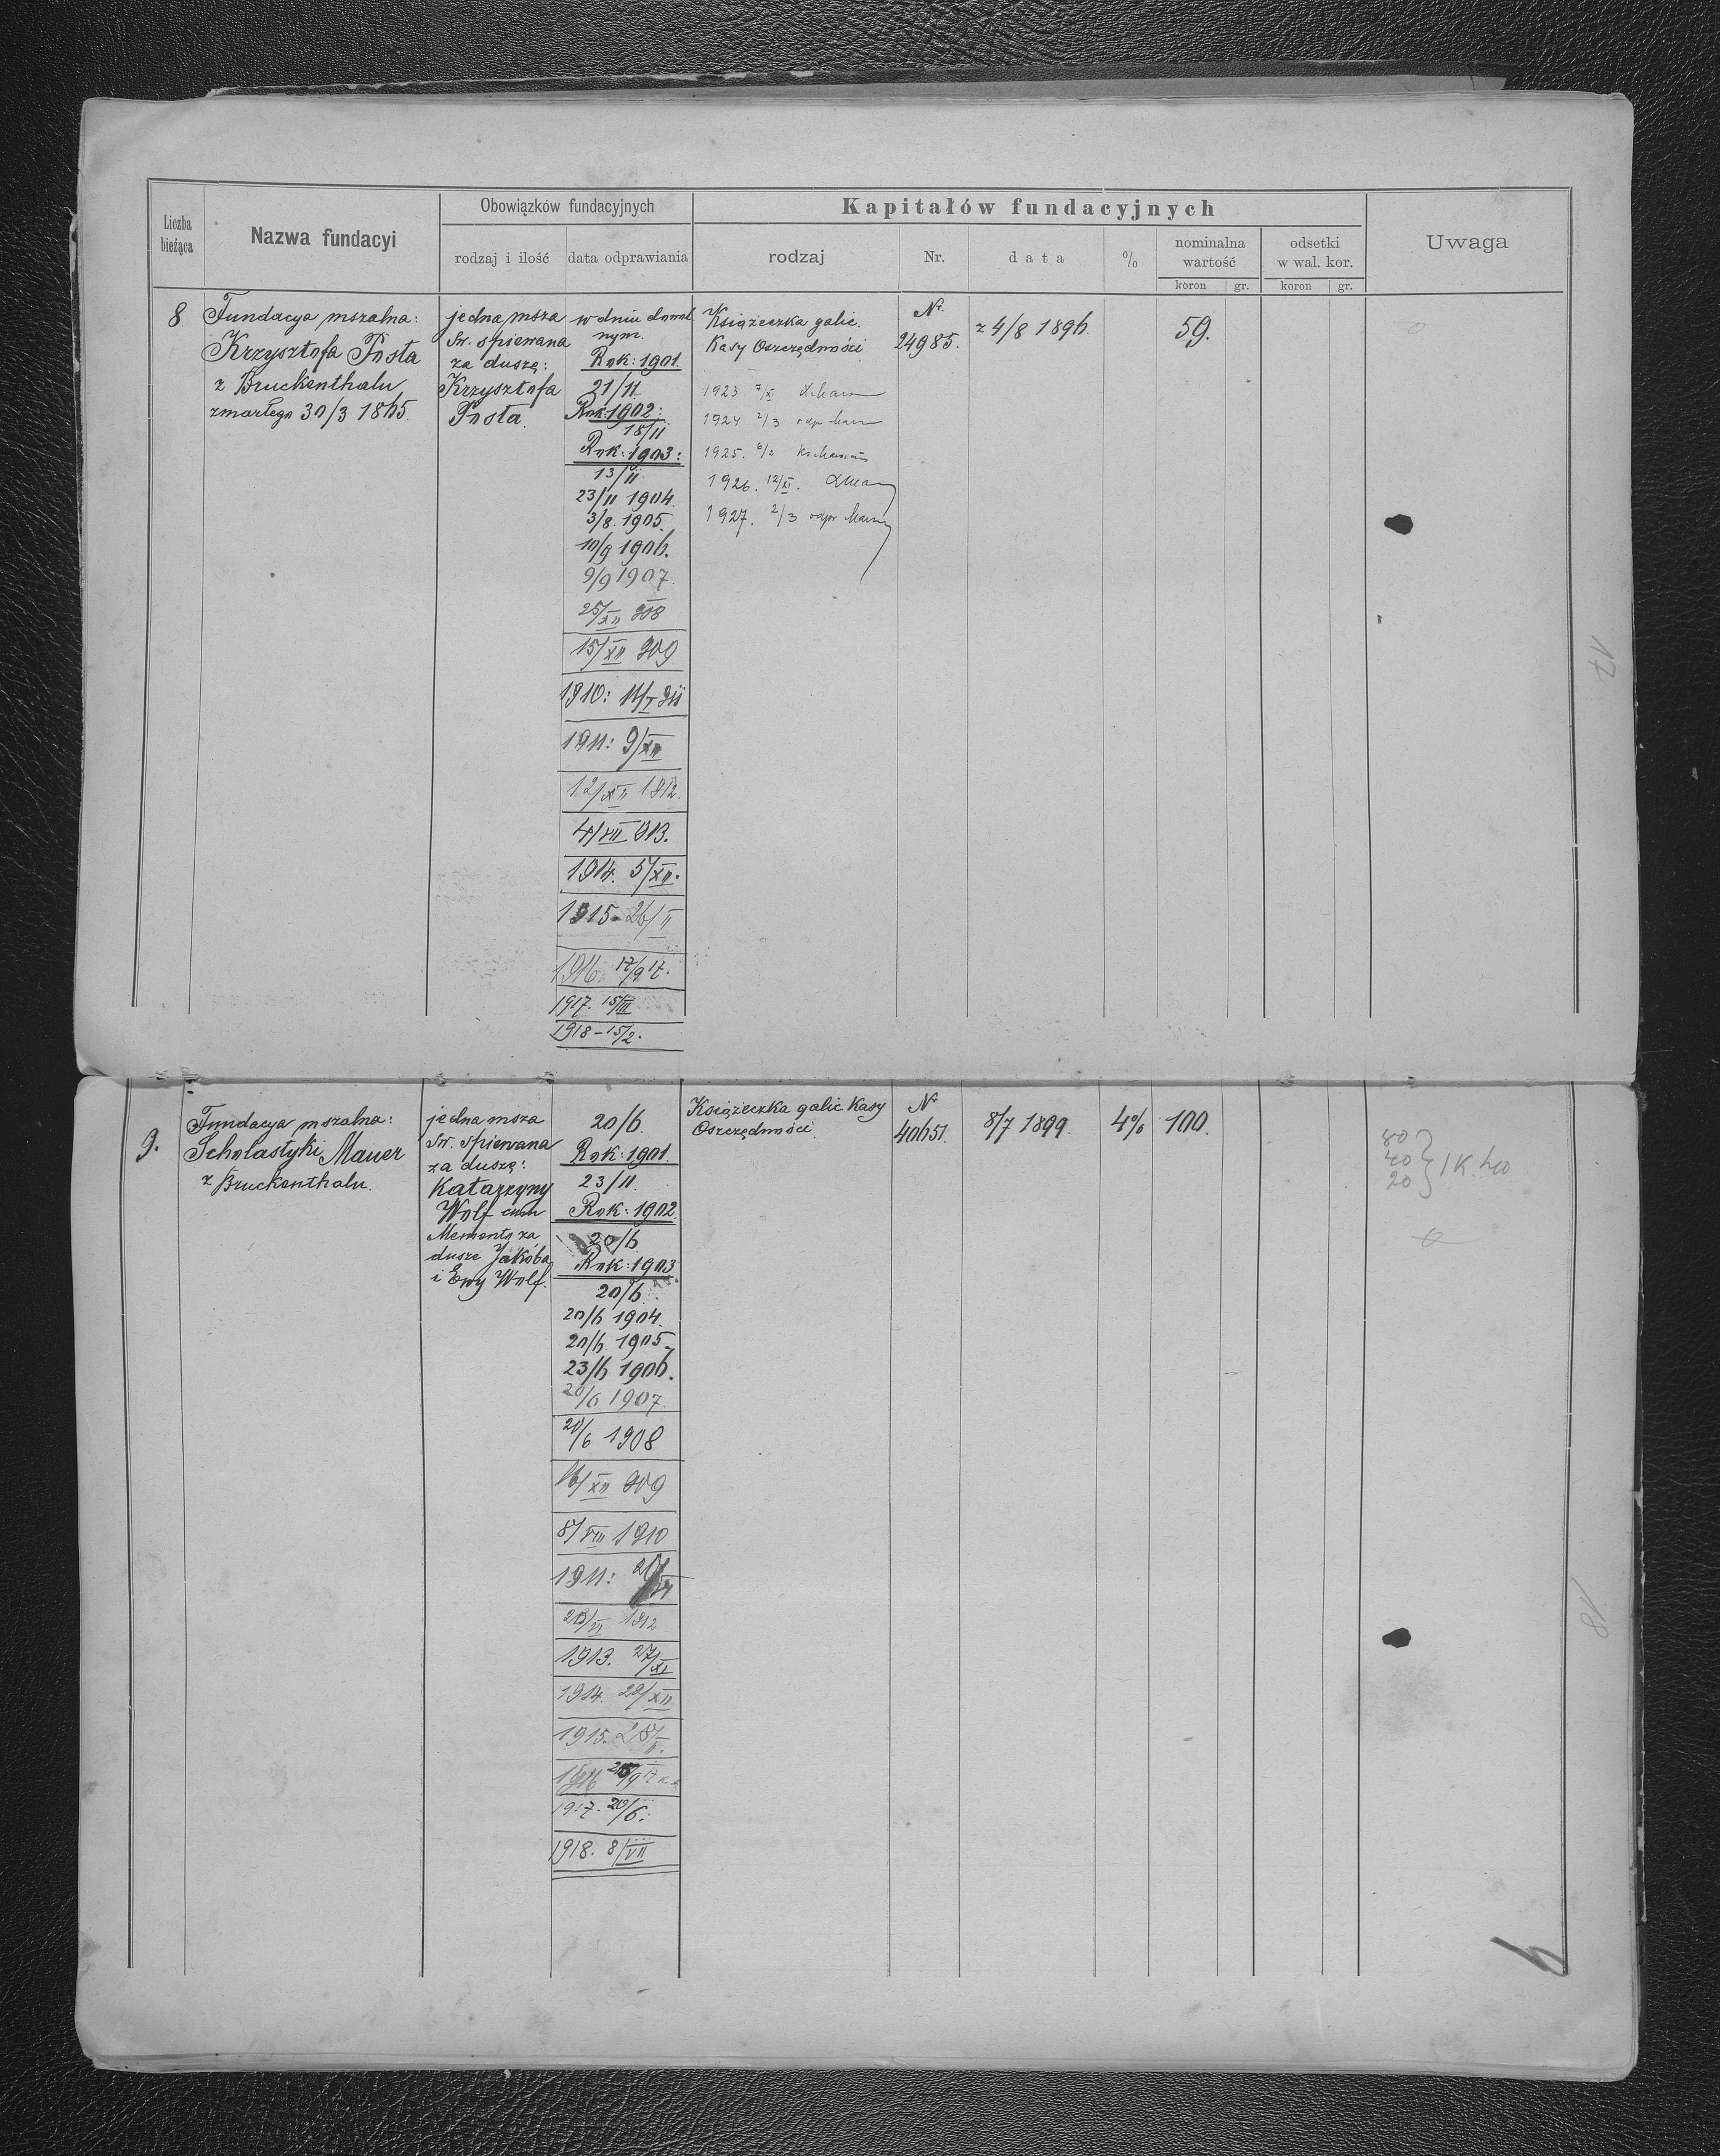 Liczba bieżąca
Nazwa fundacyi
Obowiązków fundacyjnych
rodzaj i ilość
data odprawiania
Kapitałów fundacyjnych
rodzaj
Nr.
data
%
nominalna wartość
koron gr.
odsetki w wal. kor.
koron gr.
Uwaga
8
Fundacya mszalna:
Krzysztofa Posta
z Bruckenthalu
zmarłego 30/3 1865.
jedna msza
św. śpiewana
za duszę:
Krzysztofa
Posta.
w dniu dowol
nym.
Rok: 1901.
21/11.
Rok: 1902:
18/11
Rok: 1903:
13/11
23/11 1904.
3/8. 1905.
10/9 1906.
9/9 1907.
25/XII 908
15/XII 909
1910: 11/I 911
1911: 9/XII
12/XII 1912.
4/XII 913.
1914. 5/XII.
1915 - 26/II
1916. 17/9 17.
1917. 15/III
1918 - 15/2.
Książeczka galic.
Kasy Oszczędności
1923 7/XI
1924 2/3
1925. 6/2
1926. 12/XI.
1927. 2/3
Nr.
24985.
z 4/8 1896.
59.
17
9.
Fundacya mszalna:
Scholastyki Mauer
z Bruckenthalu.
jedna msza
św. śpiewana
za duszę:
Katarzyny
Wolf cum
Memento za
dusze Jakóba
i Ewy Wolf.
20/6.
Rok: 1901.
23/11.
Rok: 1902.
20/6
Rok: 1903
20/6.
20/6 1904.
20/6. 1905.
23/6 1906.
20/6 1907.
20/6 1908
16/XII 909
8/VIII 1910
1911: 20/
20/VI 1912
1913. 27/XI
1914. 29/XII
1915. 28/II.
1916 /9 17
1917. 20/6.
1918. 8/VII
Książeczka galic Kasy
Oszczędności.
Nr
40651.
8/7 1899.
4%
100.
80
40
20 } 1 K. 40
18